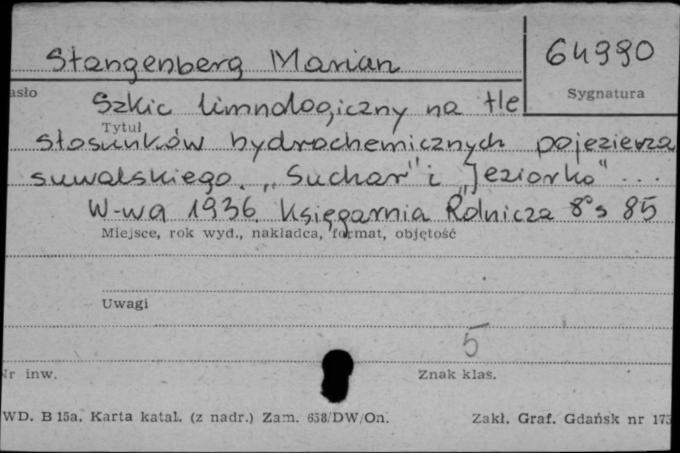 Stangenberg Marian
64990
asło
Sygnatura
Szkic limnologiczny na tle
Tytuł
stosunków hydrochemicznych pojezierza
suwalskiego. „Suchar" i „Jeziorko" ...
W-wa 1936. Księgarnia Rolnicza 8° s 85
Miejsce, rok wyd., nakładca, format, objętość
Uwagi
5
Nr inw.
Znak klas.
WD. B 15a. Karta katal. (z nadr.) Zam. 658/DW/On.
Zakł. Graf. Gdańsk nr 175